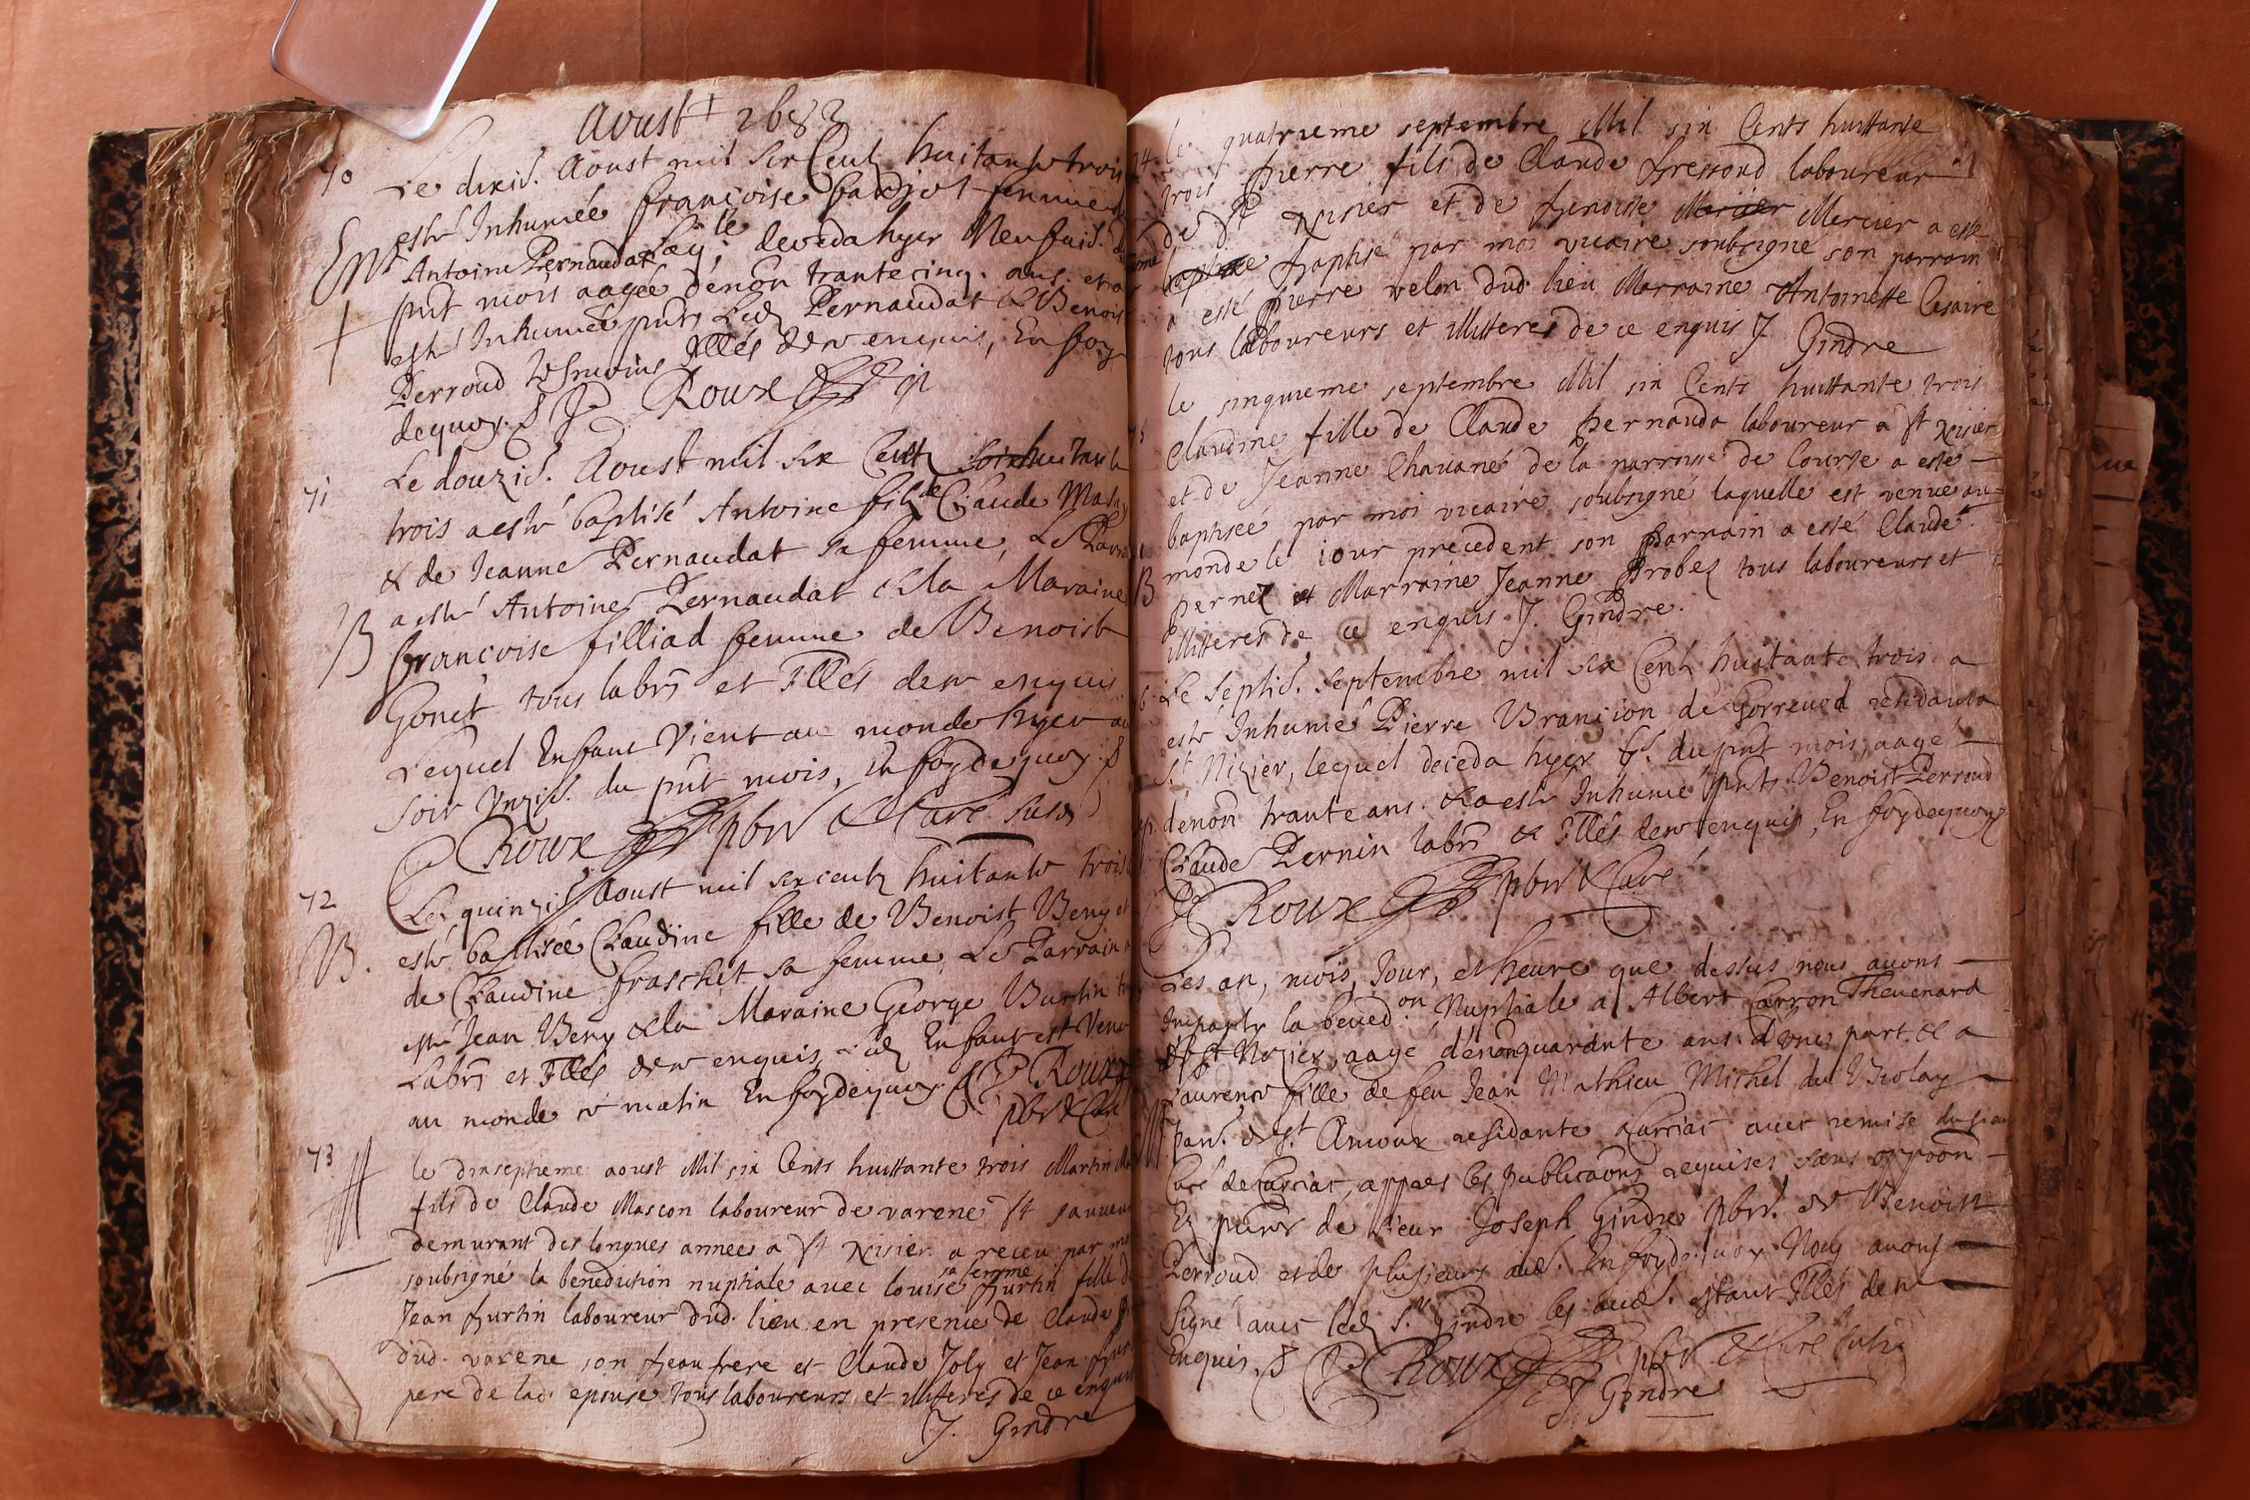 Aoust 1683
70
Le dixie. Aoust mil six Centz huitante trois
estè Inhumée françoise femme
Ent Antoine Pernaudat decedahyer Neufuie. 
pnt mois aagée dénon trante cinq. ans. et a
estè Inhumée pnts Led Pernaudat & Benoist
Perroud Illés de ce enquis, En foy
dequoy. Roux
71
Le douzie. Aoust mil six Centz huitante
trois a estè baptisé Antoine fils de Claude
& de Jeanne Pernaudat sa femme, Le
B a estè Antoine Pernaudat & la Maraine
françoise filliad femme de Benoist
Gonet tous labrs et Illés de ce enquis
Lequel Enfant Vient au monde hyer au
soir Vnzie. du pnt mois, En foy dequoy.
Roux pbre & Curé susd
72
Le quinzie Aoust mil six centz huitante trois
B. estè baptisée Claudine fille de Benoist Beny et
de Claudine fraschet sa femme, Le Parrain
estè Jean Beny & la Maraine George Burtin
Labrs et Illés de ce enquis, Led Enfant est Venu
au monde ce matin En foy dequoy. Roux
pbre & Curé
73
M
le dixseptieme aoust Mil six Cents huittante trois Martin
fils de Claude Mascon laboureur de varene St sauveur
demurant des longues annees a St Nisier a receu par moi
soubsigné la benediction nuptiale avec louise furtin fille d
sa femme
Jean furtin laboureur dud. lieu en presence de Claude
dud. varene son beau frere et Claude Joly et Jean
pere de lad. epouse tous laboureurs et illiteres de ce enquis
J. Gindre
74 le quatrieme septembre Mil six Cents huittante
trois Pierre fils de Claude laboureur
de St Nisier et de Mercier a esté
baptise par moi vicaire soubsigné son parrain
a esté Pierre velon dud. lieu Marraine Antoinette Cesaire
tous laboureurs et illitteres de ce enquis J. Gindre
le sinquieme septembre Mil six Cents huittante trois
Claudine fille de Claude Pernauda laboureur a St Nisier
et de Jeanne Chavané de la parroisse de a esté
baptisée par moi vicaire soubsigné laquelle est venue au
monde le iour precedent son parrain a esté Claude
B Pernet et Marraine Jeanne Probez tous laboureurs et
illitteres de ce enquis J. Gindre.
Le Septie. Septembre mil six Centz huitante trois a
estè Inhumé Pierre Brancion de Gorrevod residant a
St Nizier, lequel deceda hyer 6e. du pnt mois, aagé
dénon trante ans. & a estè Inhumé pnts Benoist Perroud
Claude Pernin labrs & Illés de ce enquis, En foy dequoy
Roux pbre & Curé
Les an, mois, Jour, et heure que dessus nous auons
Imparty la bened.on Nuptiale a Albert Carron Thevenard
de St Nizier, aagé dénonquarante ans d'vne part, & a
Laurence fille de feu Jean Mathieu Michel du Biolay
M parr. de St Amour residante a Curciat auec remise du sieur
Curé de Curciat, appres les publicaons requises sans oppoon
Es pnces de sieur Joseph Gindre pbre. & de Benoist
Perroud et de plusieurs aues. En foy dequoy Nous auons
Signé auec led Sr. Gindre les aues. estant Illés de ce
Enquis. Roux pbre & Curé susd
J. Gindre